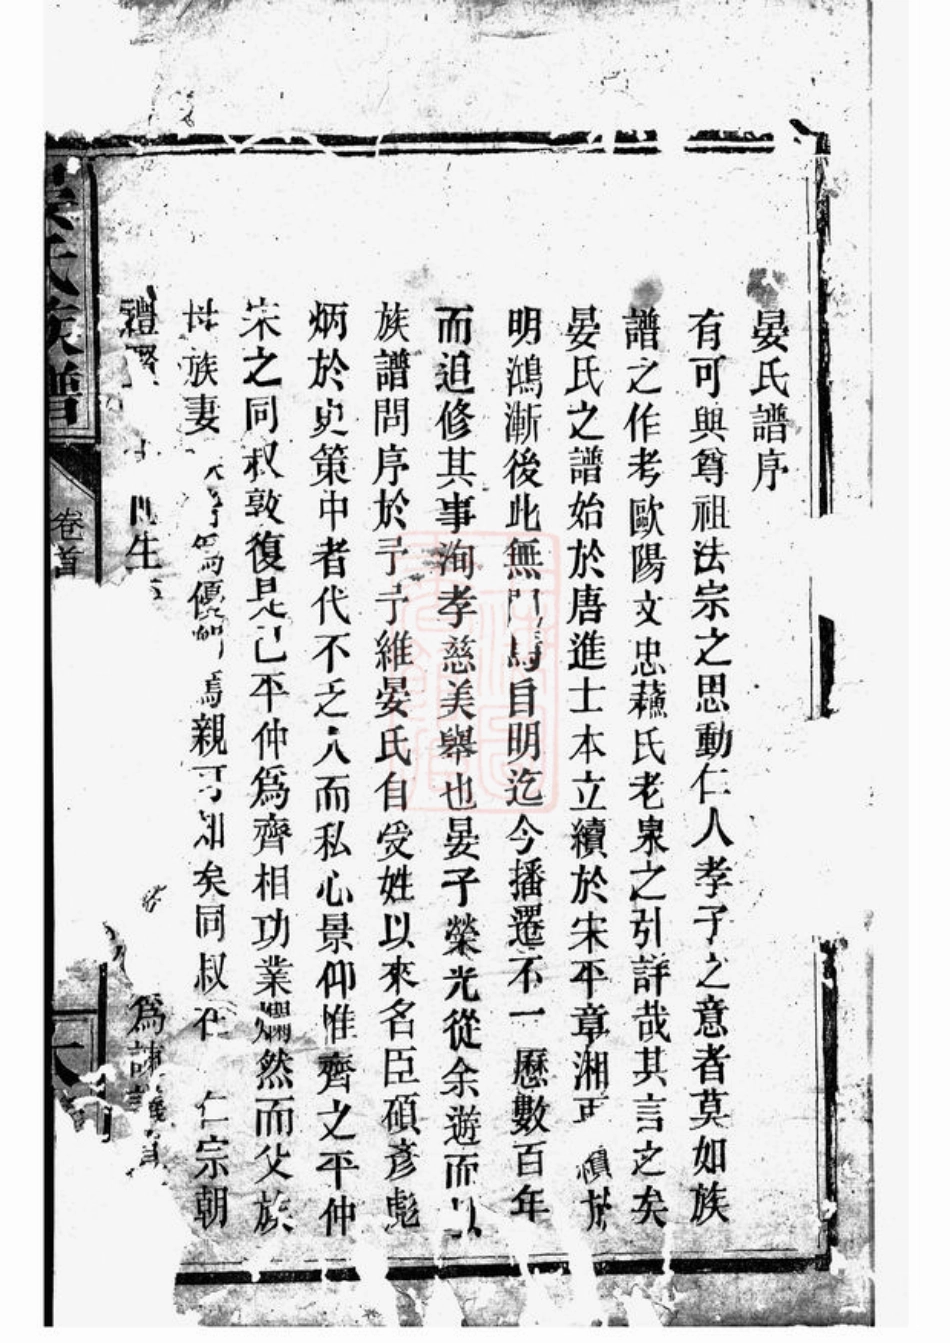 晏氏譜序
有可與尊祖法宗之思動仁人孝子之意者莫如族
譜之作考歐陽文忠蘓氏老泉之引詳哉其言之矣
晏氏之譜始於唐進士本立續於宋平章湘 續於
明鴻漸後此無 焉自明迄今播遷不一歷數百年
而追修其事洵孝慈美舉也晏子榮光從余遊而以
族譜問序於予予維晏氏自受姓以來名臣碩彥彪
炳於史策中者代不乏人而私心景仰惟齊之平仲
宋之同叔敦復是已平仲爲齊相功業爛然而父族
母族妻 爲優 焉親可知矣同叔在 仁宗朝
禮賢 生 爲諫議
氏族譜
卷首